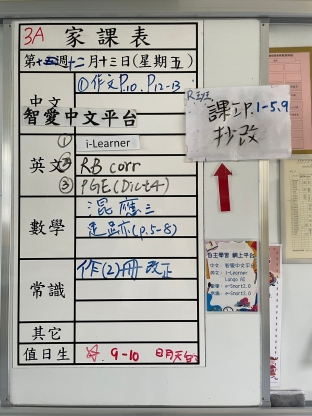 3A 家課表
第十五週十二月十三日(星期五)
中文
①作文P.10、P.12-13
智愛中文平台
① i-Learner
英文
② RB corr
③ PGE(Dict4)
數學
混應三
走區亦(p.5-8)
常識
作(2)冊改正
其它
值日生
9-10
R班
課卬P.1-5.9
抄改
自主學習 網上平台
中文: 智愛中文平台
英文: i-Learner